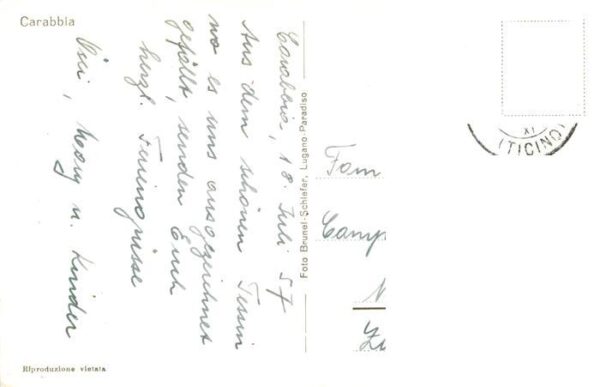 Carabbia
Carabbia, 18. Juli 57
Aus dem schönen Tessin
wo es uns ausgezeichnet
gefällt, senden Euch
herzl. Feriengrüsse
u. Kinder
Riproduzione vietata
Foto Brunel-Schiefer, Lugano-Paradiso
XI
(TICINO)
Fam
Camp